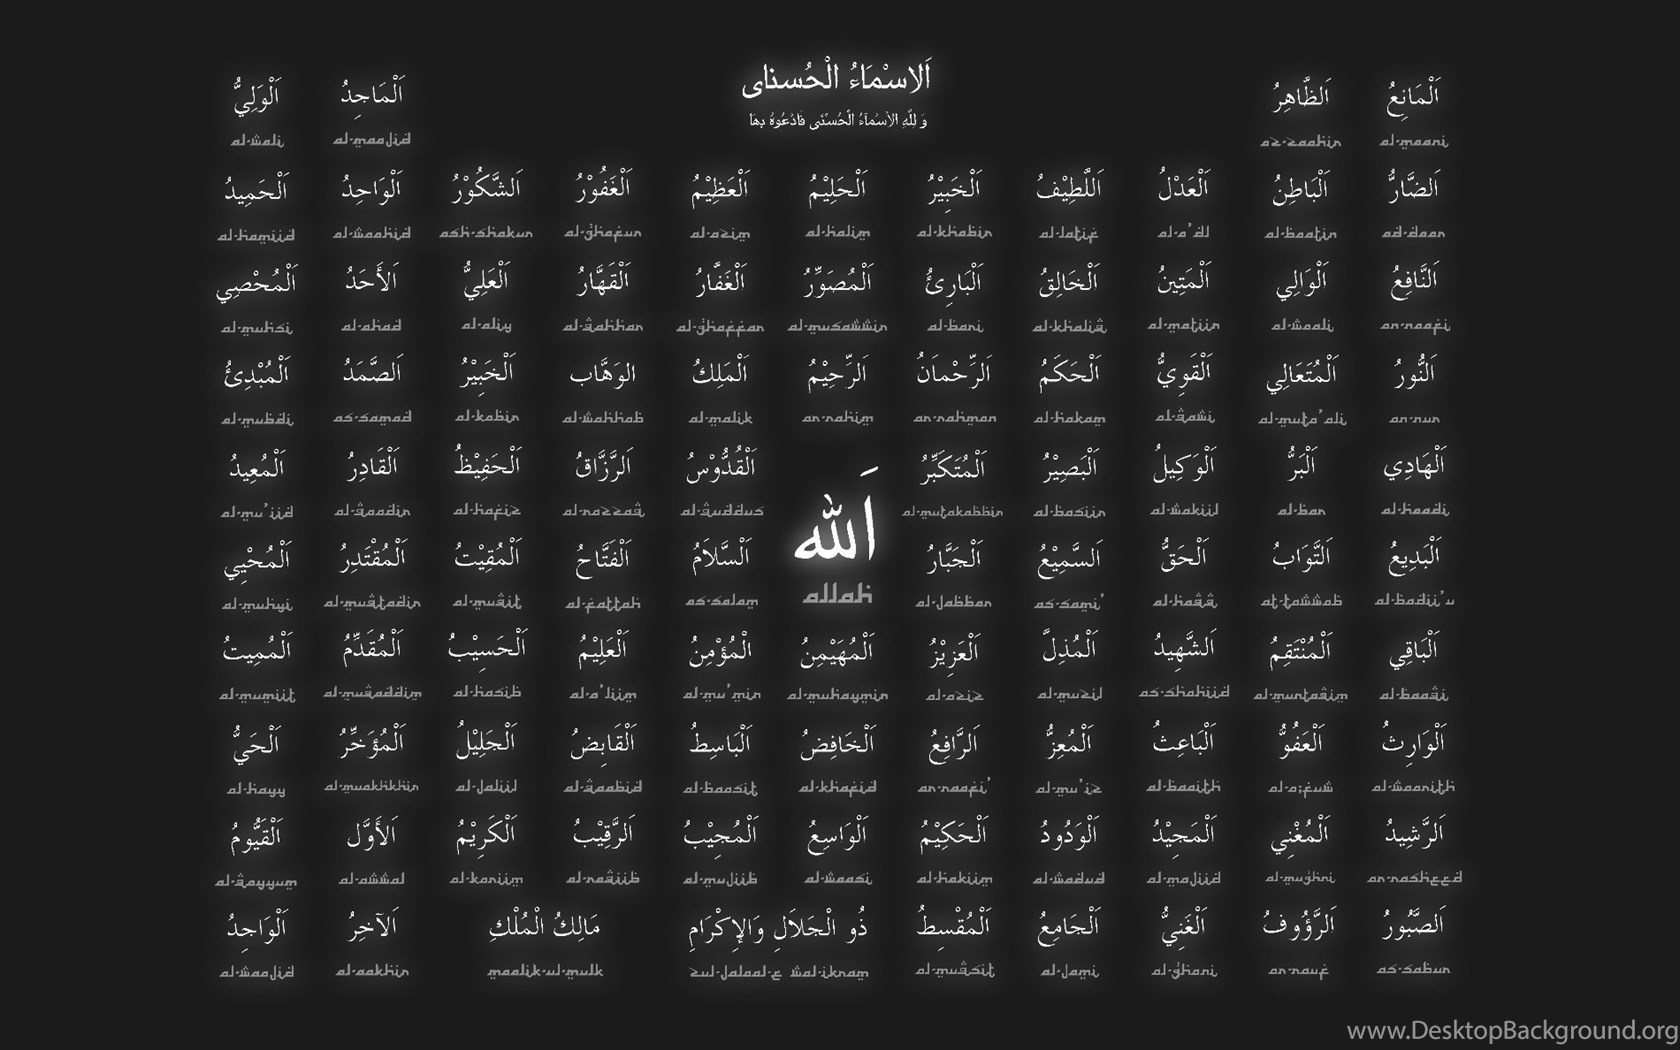 اَلاسْمَاءُ الْحُسناى
وَ لِلَّهِ الاَسْمَاءُ الْحُسْنَى فَادْعُوهُ بِهَا
اَلْمَانِعُ اَلظَّاهِرُ اَلْمَاجِدُ اَلْوَلِيُّ
al-wali al-maajid az-zaahir al-maani
اَلضَّارُّ اَلْبَاطِنُ اَلْعَدْلُ اَللَّطِيْفُ اَلْخَبِيْرُ اَلْحَلِيْمُ اَلْعَظِيْمُ اَلْغَفُوْرُ اَلشَّكُوْرُ اَلْوَاحِدُ اَلْحَمِيدُ
al-hamiid al-waahid ash-shakur al-ghafur al-azim al-halim al-khabir al-latif al-a'dl al-baatin ad-daar
اَلنَّافِعُ اَلْوَالِي اَلْمَتِينُ اَلْخَالِقُ اَلْبَارِئُ اَلْمُصَوِّرُ اَلْغَفَّارُ اَلْقَهَّارُ اَلْعَلِيُّ اَلأَحَدُ اَلْمُحْصِي
al-muhsi al-ahad al-aliy al-qahhar al-ghaffar al-musawwir al-bari al-khaliq al-matiin al-waali an-naafi
اَلنُّورُ اَلْمُتَعَالِي اَلْقَوِيُّ اَلْحَكَمُ اَلرَّحْمَانُ اَلرَّحِيْمُ اَلْمَلِكُ الوَهَّاب اَلْخَبِيْرُ اَلصَّمَدُ اَلْمُبْدِئُ
al-mubdi as-samad al-kabir al-wahhab al-malik ar-rahim ar-rahman al-hakam al-qawi al-muta'ali an-nur
اَلْهَادِي اَلْبَرُّ اَلْوَكِيلُ اَلْبَصِيْرُ اَلْمُتَكَبِّرُ اَلْقُدُّوْسُ اَلرَّزَّاقُ اَلْحَفِيْظُ اَلْقَادِرُ اَلْمُعِيدُ
al-mu'iid al-qaadir al-hafiz al-razzaq al-quddus al-mutakabbir al-basiir al-wakiil al-bar al-haadi
اَلله
allah
اَلْبَدِيعُ اَلتَّوَابُ اَلْحَقُّ اَلسَّمِيْعُ اَلْجَبَّارُ اَلسَّلاَمُ اَلْفَتَّاحُ اَلْمُقِيْتُ اَلْمُقْتَدِرُ اَلْمُحْيِي
al-muhyi al-muqtadir al-muqit al-fattah as-salam al-jabbar as-sami' al-haqq at-tawwab al-badii'u
اَلْبَاقِي اَلْمُنْتَقِمُ اَلشَّهِيدُ اَلْمُذِلَّ اَلْعَزِيْزُ اَلْمُهَيْمِنُ الْمُؤْمِنُ اَلْعَلِيْمُ اَلْحَسِيْبُ اَلْمُقَدِّمُ اَلْمُمِيتُ
al-mumiit al-muqaddim al-hasib al-a'liim al-mu'min al-muhaymin al-aziz al-muzil as-shahiid al-muntaqim al-baaqi
اَلْوَارِثُ اَلْعَفُوُّ اَلْبَاعِثُ اَلْمُعِزُّ اَلرَّافِعُ اَلْخَافِضُ اَلْبَاسِطُ اَلْقَابِضُ اَلْجَلِيْلُ اَلْمُؤَخِّرُ اَلْحَيُّ
al-hayy al-muakhkhir al-jaliil al-qaabid al-baasit al-khafid ar-raafi' al-mu'iz al-baaith al-a;fuw al-waarith
اَلرَّشِيدُ اَلْمُغْنِي اَلْمَجِيْدُ اَلْوَدُودُ اَلْحَكِيْمُ اَلْوَاسِعُ اَلْمُجِيْبُ اَلرَّقِيْبُ اَلْكَرِيْمُ اَلأَوَّل اَلْقَيُّومُ
al-qayyum al-awwal al-kariim al-raqiib al-mujiib al-waasi al-hakiim al-wadud al-majiid al-mughni ar-rasheed
اَلصَّبُورُ اَلرَّؤُوفُ اَلْغَنِيُّ اَلْجَامِعُ اَلْمُقْسِطُ ذُو الْجَلاَلِ وَالإِكْرَامِ مَالِكُ الْمُلْكِ اَلآخِرُ اَلْوَاجِدُ
al-waajid al-aakhir maalik-ul-mulk zul-jalaal-e wal-ikram al-muqsit al-jami al-ghani ar-rauf as-sabur
www.DesktopBackground.org